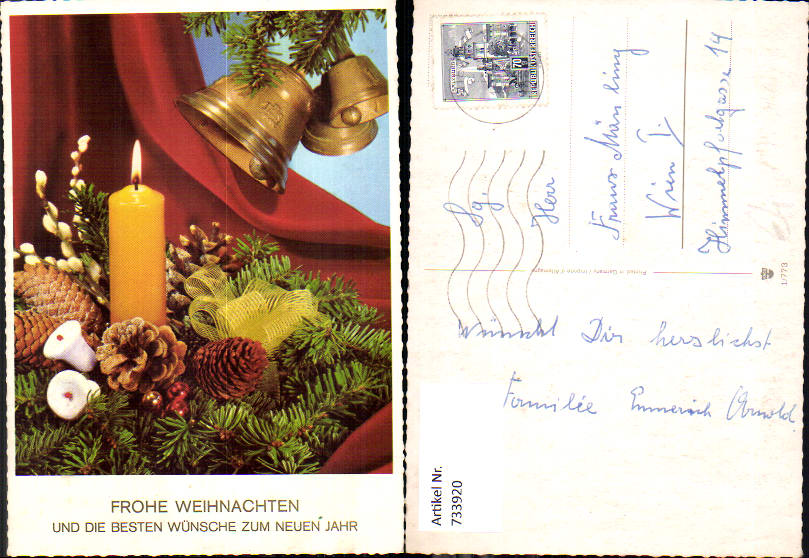 FROHE WEIHNACHTEN
UND DIE BESTEN WÜNSCHE ZUM NEUEN JAHR
70
REPUBLIK ÖSTERREICH
Sg.
Herr
Franz Mänling
Wien I.
Himmelpfortgasse 14
Printed in Germany / Imprimé d'Allemagne
1/773
Wünscht Dir herzlichst
Familie Emmerich Arnold
Artikel Nr.
733920